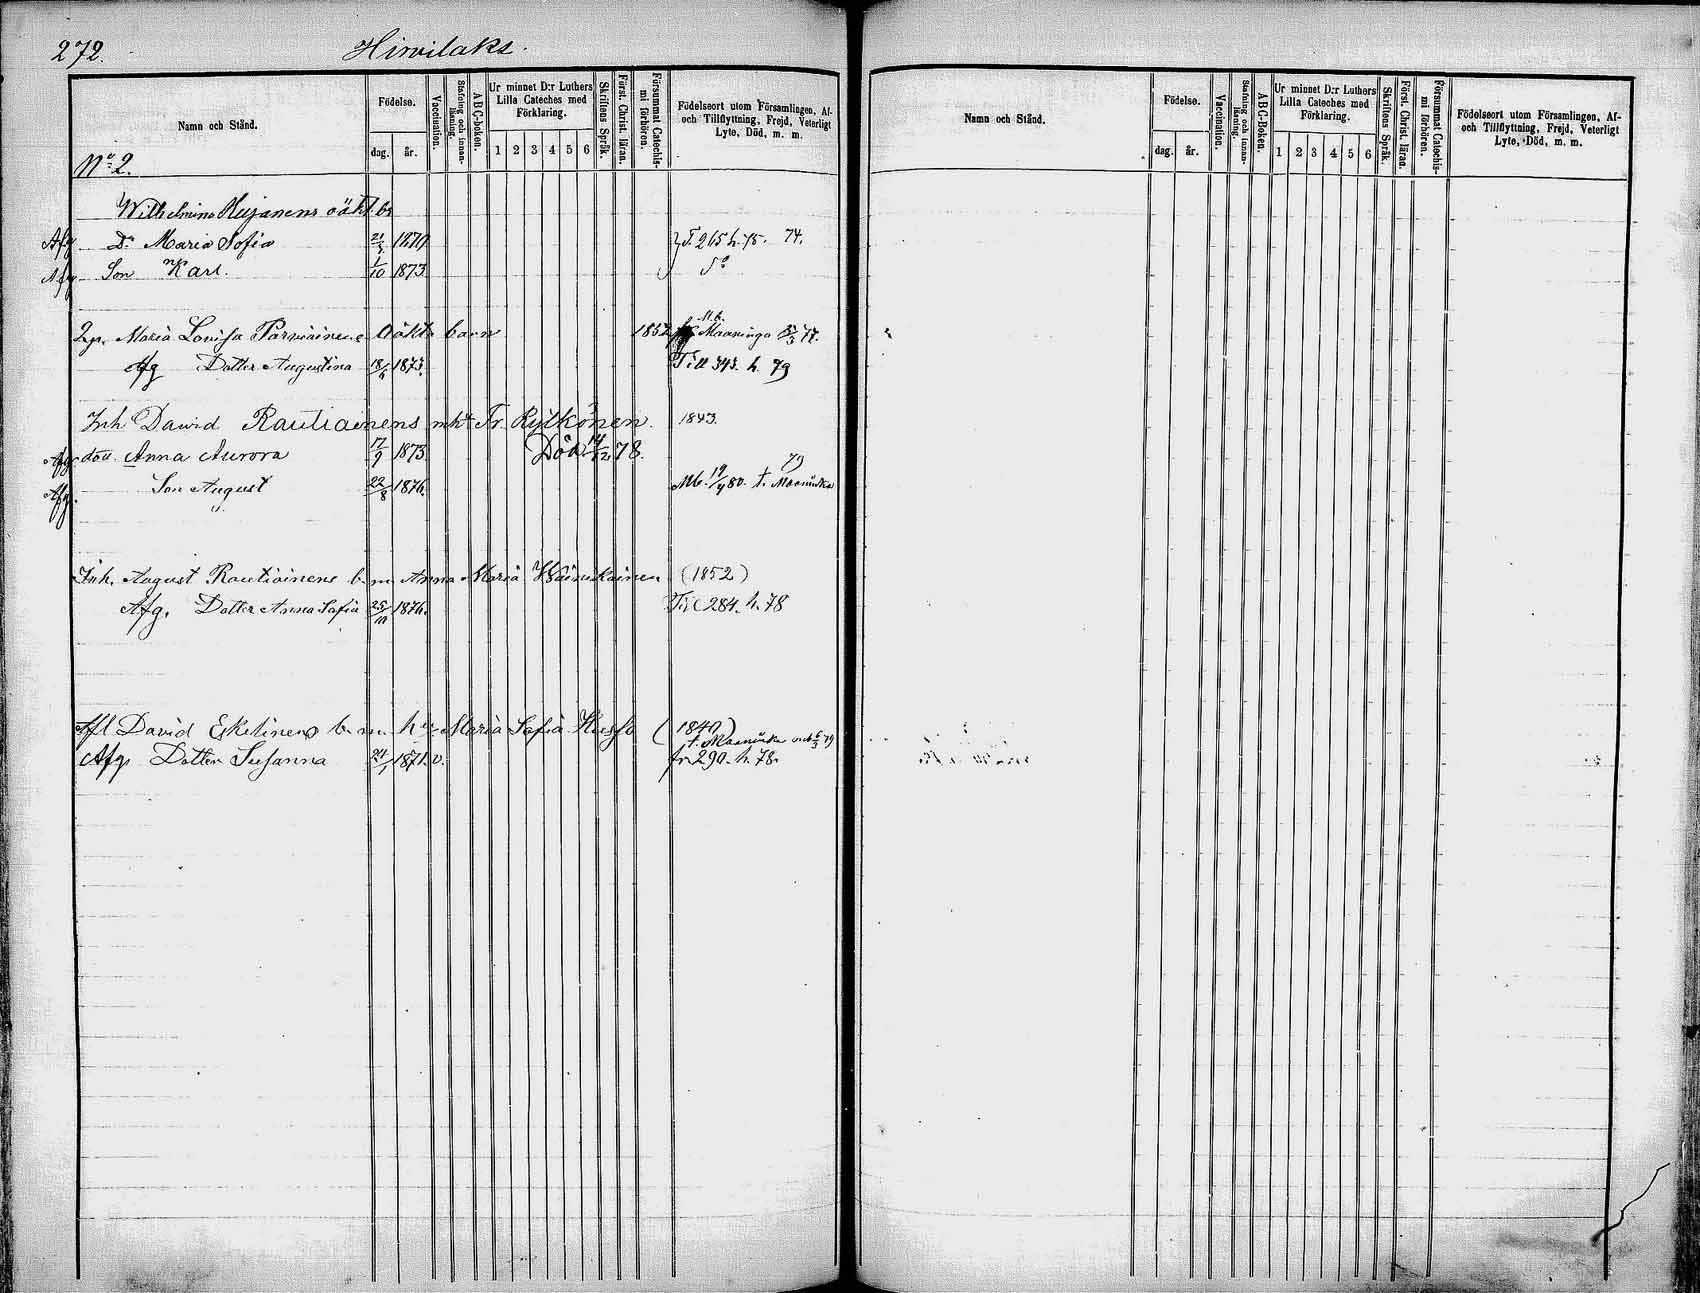 272.
Hirvilaks.
Namn och Stånd.
Födelse.
dag. år.
Vaccination.
Stafning och innanläsning.
ABC-boken.
Ur minnet D:r Luthers Lilla Cateches med Förklaring.
1 2 3 4 5 6
Skriftens Språk.
Först. Christ. läran.
Försummat Catechismi förhören.
Födelseort utom Församlingen, Af- och Tillflyttning, Frejd, Veterligt Lyte, Död, m. m.
No 2.
Wilhelmina oäkt. bn
Afg Dr Maria Sofia 1870 T. 265 h. 75. 74.
Afg Son Karl. 1/10 1873 do
Maria Lovisa Parviainens Oäkta barn 1852 Mb. Maaninga 77.
Afg Dotter Augustina 1873. Till 343. h. 79
Inh David Rautiainens m h Fr. Rytkönen. 1843.
Afg dott. Anna Aurora 17/9 1873 Död 14/12 78.
Afg. Son August 22/8 1876. Mb. 19/4 80. t. Maaninka 79
Inh. August Rautiainens b. m. Anna Maria Wäinikainen (1852)
Afg. Dotter Anna Sofia 25/10 1876. Till 284. h. 78
David Eskelinens b. m. h. Maria Sofia (1840)
t. Maaninka mb 6/3 79
Afg. Dotter Susanna 24/1 1871. v. fr. 290. h. 78.
Namn och Stånd.
Födelse.
dag. år.
Vaccination.
Stafning och innanläsning.
ABC-Boken.
Ur minnet D:r Luthers Lilla Cateches med Förklaring.
1 2 3 4 5 6
Skriftens Språk.
Först. Christ. läran.
Försummat Catechismi förhören.
Födelseort utom Församlingen, Af- och Tillflyttning, Frejd, Veterligt Lyte, Död, m. m.